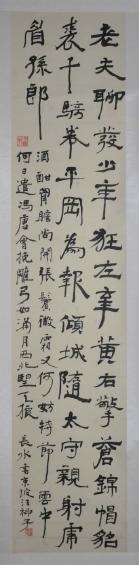 老夫聊發少年狂左牽黃右擎蒼錦帽貂
裘千騎卷平岡為報傾城隨太守親射虎
看孫郎
酒酣胸膽尚開張鬢微霜又何妨持節雲中
何日遣馮唐會挽雕弓如滿月西北望天狼 長水書東坡江神子